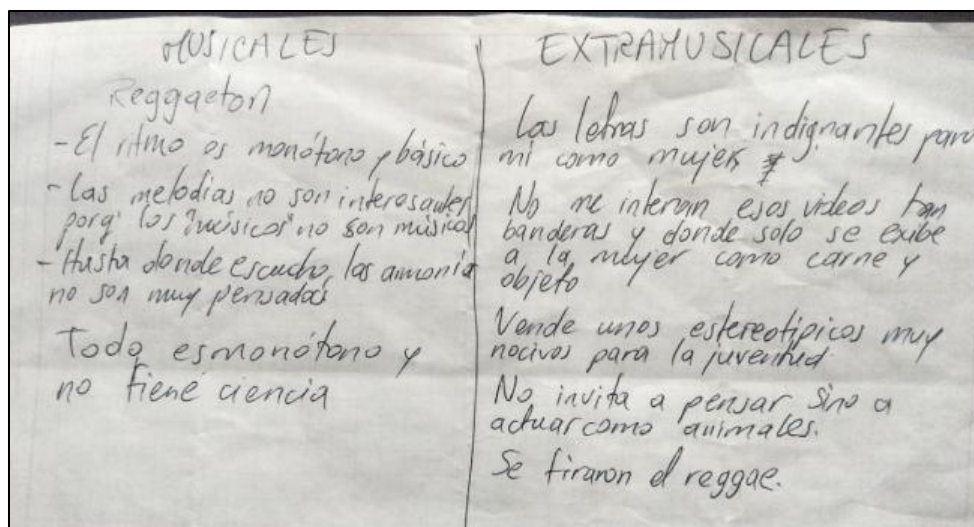 MUSICALES
Reggaeton
- El ritmo es monótono y básico
- Las melodias no son interesantes
porq' los "músicos" no son músicos
- Hasta donde escucho, las armonía
no son muy pensadas
Todo es monótono y
no tiene ciencia
EXTRAMUSICALES
Las letras son indignantes para
mi como mujer
No me interesan esos videos tan
banderas y donde solo se exibe
a la mujer como carne y
objeto
Vende unos estereotípicos muy
nocivos para la juventud
No invita a pensar sino a
actuar como animales.
Se tiraron el reggae.